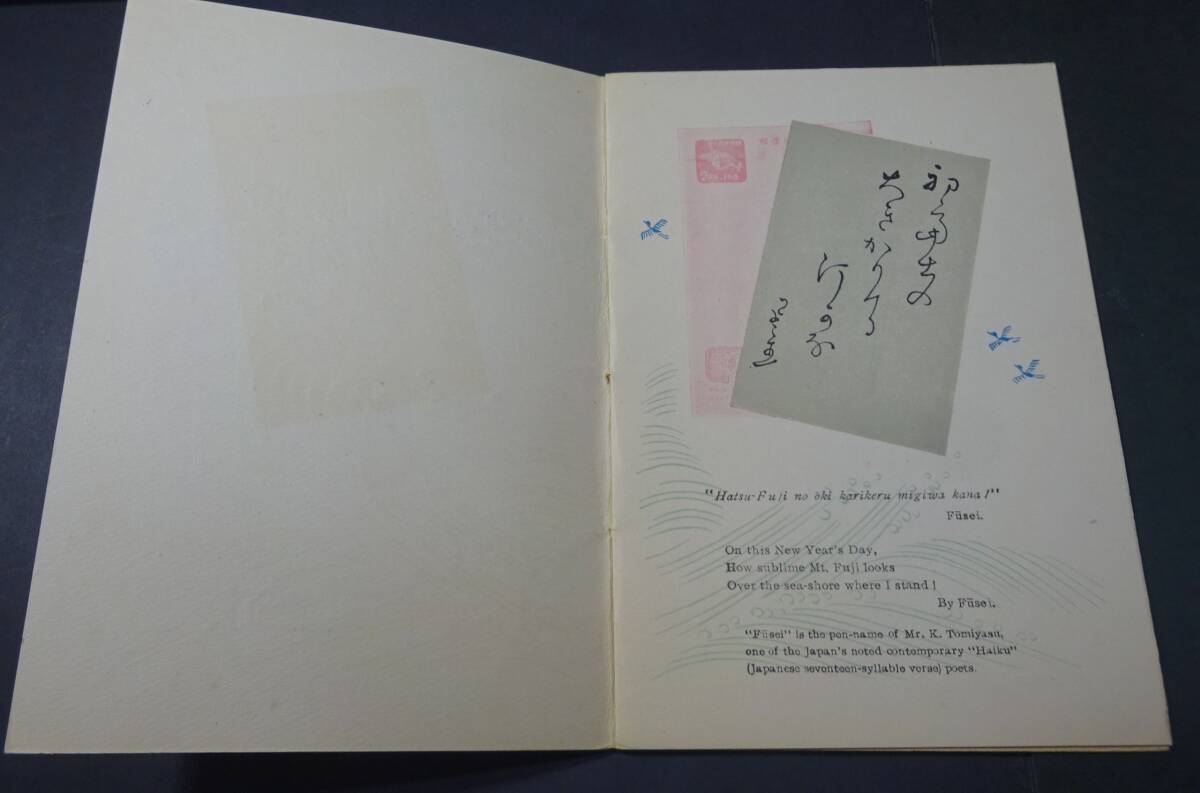 初富士の
大きかりける
汀かな
風生
"Hatsu-Fuji no ōki karikeru migiwa kana!"
Fūsei.
On this New Year's Day,
How sublime Mt. Fuji looks
Over the sea-shore where I stand!
By Fūsei.
"Fūsei" is the pen-name of Mr. K. Tomiyasu,
one of the Japan's noted contemporary "Haiku"
(Japanese seventeen-syllable verse) poets.